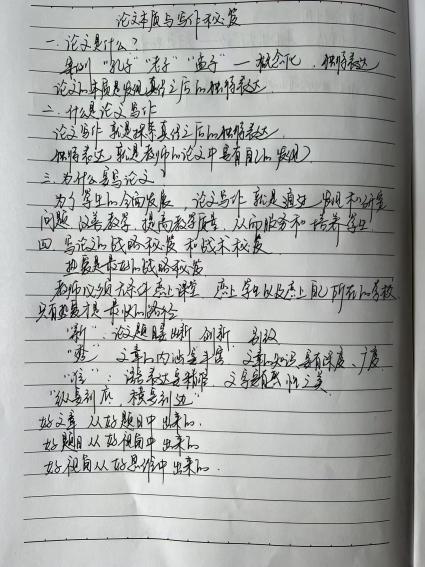 论文本质与写作秘笈
一、论文是什么?
案例 "孔子" "老子" "孟子" — 概念化、独特表达
论文的本质是发现真传之后的独特表达.
二、什么是论文写作
论文写作 就是探索真传之后的独特表达.
独特表达 就是教师的论文中要有自己的发现)
三、为什么要写论文
为了学生的全面发展, 论文写作 就是通过 发现和研究
问题, 改善教学, 提高教学质量, 从而服务和培养学生.
四、写论文的战略秘笈 和战术秘笈
热爱是最大的战略秘笈
教师必须 热爱上课堂, 恋上学生以及恋上自己所在的学校
只有热爱才是最快的路径
"新": 论文题目要出新、创新、别致
文章的内涵要丰富、文章的知识要有深度、广度
"准": 语言表达要精准, 文字要有
"纵要到底, 横要到边"
好文章 从好题目中出来的.
好题目从好视角中出来的
好视角从好思维中出来的.